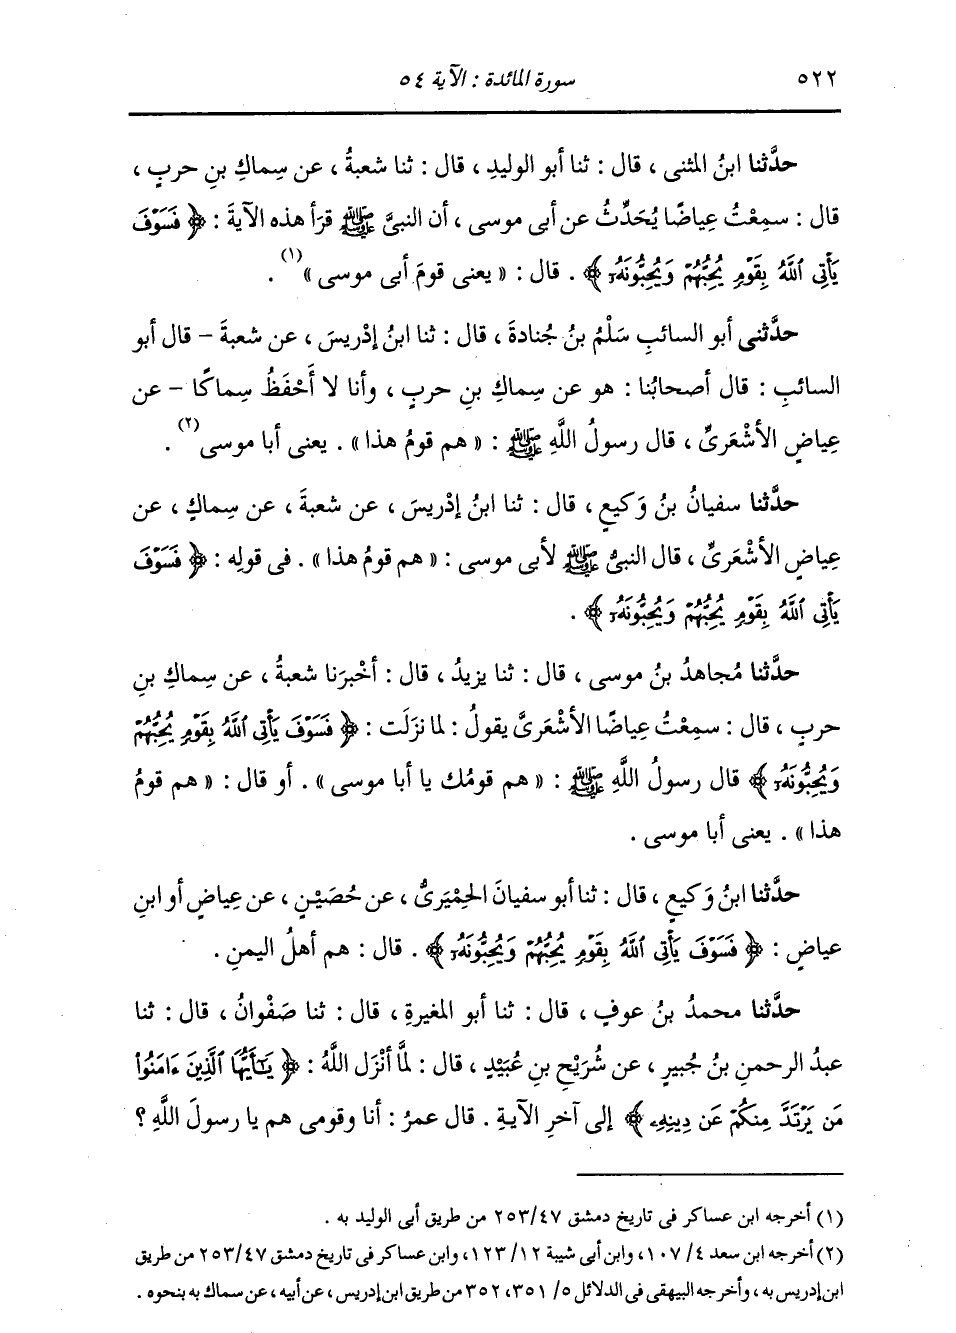 ٥٢٢ سورة المائدة : الآية ٥٤
حدَّثنا ابنُ المثنى ، قال : ثنا أبو الوليدِ ، قال : ثنا شعبةُ ، عن سِماكِ بنِ حربٍ ،
قال : سمِعْتُ عِياضًا يُحَدِّثُ عن أبى موسى ، أن النبىَّ ﷺ قرَأ هذه الآيةَ : ﴿ فَسَوْفَ
يَأْتِى ٱللَّهُ بِقَوْمٍ يُحِبُّهُمْ وَيُحِبُّونَهُۥ ﴾ . قال : « يعنى قومَ أبى موسى »(١) .
حدَّثنى أبو السائبِ سَلْمُ بنُ جُنادةَ ، قال : ثنا ابنُ إدْريسَ ، عن شعبةَ – قال أبو
السائبِ : قال أصحابُنا : هو عن سِماكِ بنِ حربٍ ، وأنا لا أَحْفَظُ سِماكًا – عن
عِياضٍ الأشْعَرىِّ ، قال رسولُ اللَّهِ ﷺ : « هم قومُ هذا » . يعنى أبا موسى(٢) .
حدَّثنا سفيانُ بنُ وَكيعٍ ، قال : ثنا ابنُ إدْريسَ ، عن شعبةَ ، عن سِماكٍ ، عن
عِياضٍ الأشْعَرىِّ ، قال النبىُّ ﷺ لأبى موسى : « هم قومُ هذا » . فى قولِه : ﴿ فَسَوْفَ
يَأْتِى ٱللَّهُ بِقَوْمٍ يُحِبُّهُمْ وَيُحِبُّونَهُۥ ﴾ .
حدَّثنا مُجاهدُ بنُ موسى ، قال : ثنا يزيدُ ، قال : أخْبرَنا شعبةُ ، عن سِماكِ بنِ
حربٍ ، قال : سمِعْتُ عِياضًا الأشْعَرىَّ يقولُ : لما نزَلَت : ﴿ فَسَوْفَ يَأْتِى ٱللَّهُ بِقَوْمٍ يُحِبُّهُمْ
وَيُحِبُّونَهُۥ ﴾ قال رسولُ اللَّهِ ﷺ : « هم قومُك يا أبا موسى » . أو قال : « هم قومُ
هذا » . يعنى أبا موسى .
حدَّثنا ابنُ وَكيعٍ ، قال : ثنا أبو سفيانَ الحِمْيَرىُّ ، عن حُصَيْنٍ ، عن عِياضٍ أو ابنِ
عياضٍ : ﴿ فَسَوْفَ يَأْتِى ٱللَّهُ بِقَوْمٍ يُحِبُّهُمْ وَيُحِبُّونَهُۥ ﴾ . قال : هم أهلُ اليمنِ .
حدَّثنا محمدُ بنُ عوفٍ ، قال : ثنا أبو المغيرةِ ، قال : ثنا صَفْوانُ ، قال : ثنا
عبدُ الرحمنِ بنُ جُبيرٍ ، عن شُرَيْحِ بنِ عُبَيْدٍ ، قال : لمَّا أنْزَل اللَّهُ : ﴿ يَـٰٓأَيُّهَا ٱلَّذِينَ ءَامَنُوا۟
مَن يَرْتَدَّ مِنكُمْ عَن دِينِهِۦ ﴾ إلى آخرِ الآيةِ . قال عمرُ : أنا وقومى هم يا رسولَ اللَّهِ ؟
(١) أخرجه ابن عساكر فى تاريخ دمشق ٢٥٣/٤٧ من طريق أبى الوليد به .
(٢) أخرجه ابن سعد ٤/ ١٠٧، وابن أبى شيبة ١٢/ ١٢٣، وابن عساكر فى تاريخ دمشق ٢٥٣/٤٧ من طريق
ابن إدريس به ، وأخرجه البيهقى فى الدلائل ٥/ ٣٥١، ٣٥٢ من طريق ابن إدريس ، عن أبيه ، عن سماك به بنحوه .